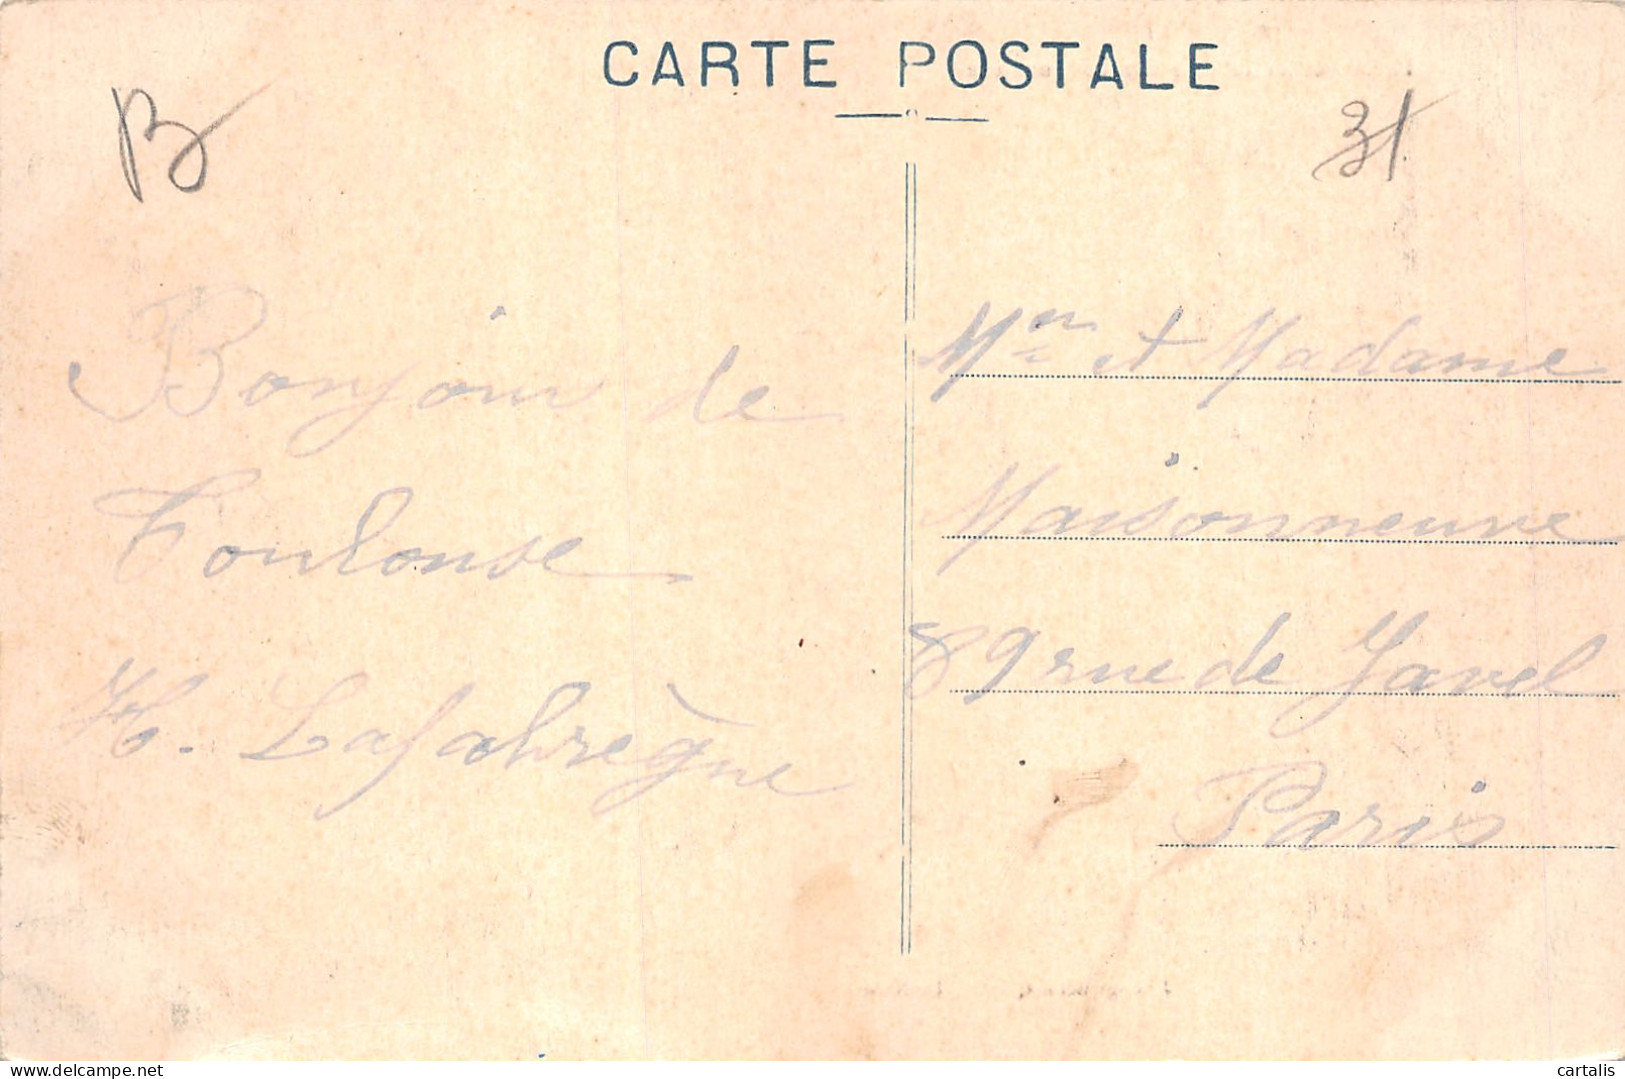 CARTE POSTALE
B
31
Bonjour de
Toulouse
H. Lafabrègue
Mer et Madame
Maisonneuve
89 rue de Javel
Paris
www.delcampe.net
cartalis